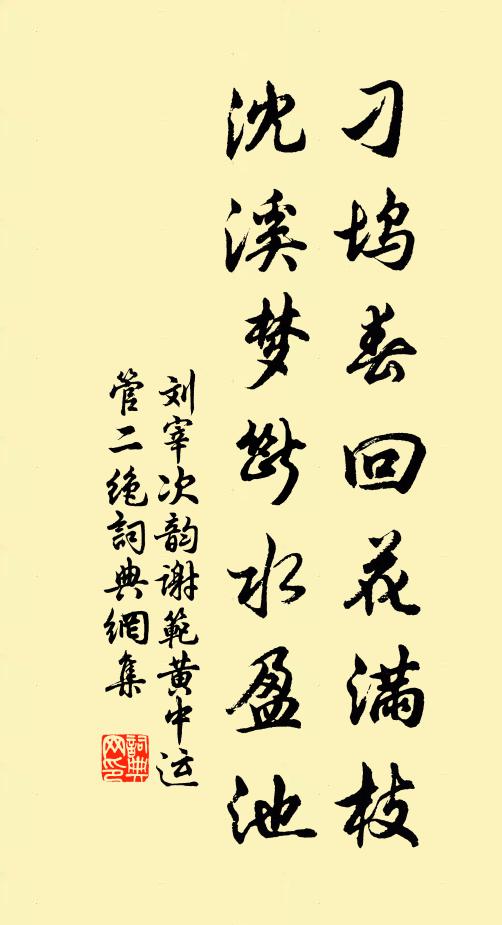 刁坞春回花满枝
沈溪梦断水盈池
刘宰次韵谢範黄中运
管二绝詞典網集
詞典
网印